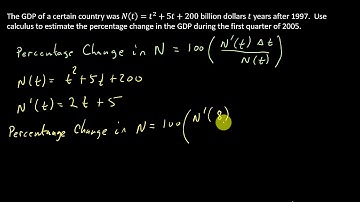 The GDP of a certain country was N(t) = t² + 5t + 200 billion dollars t years after 1997. Use
calculus to estimate the percentage change in the GDP during the first quarter of 2005.
Percentage Change in N = 100 ( N'(t) Δt / N(t) )
N(t) = t² + 5t + 200
N'(t) = 2t + 5
Percentage Change in N = 100 ( N'(8)